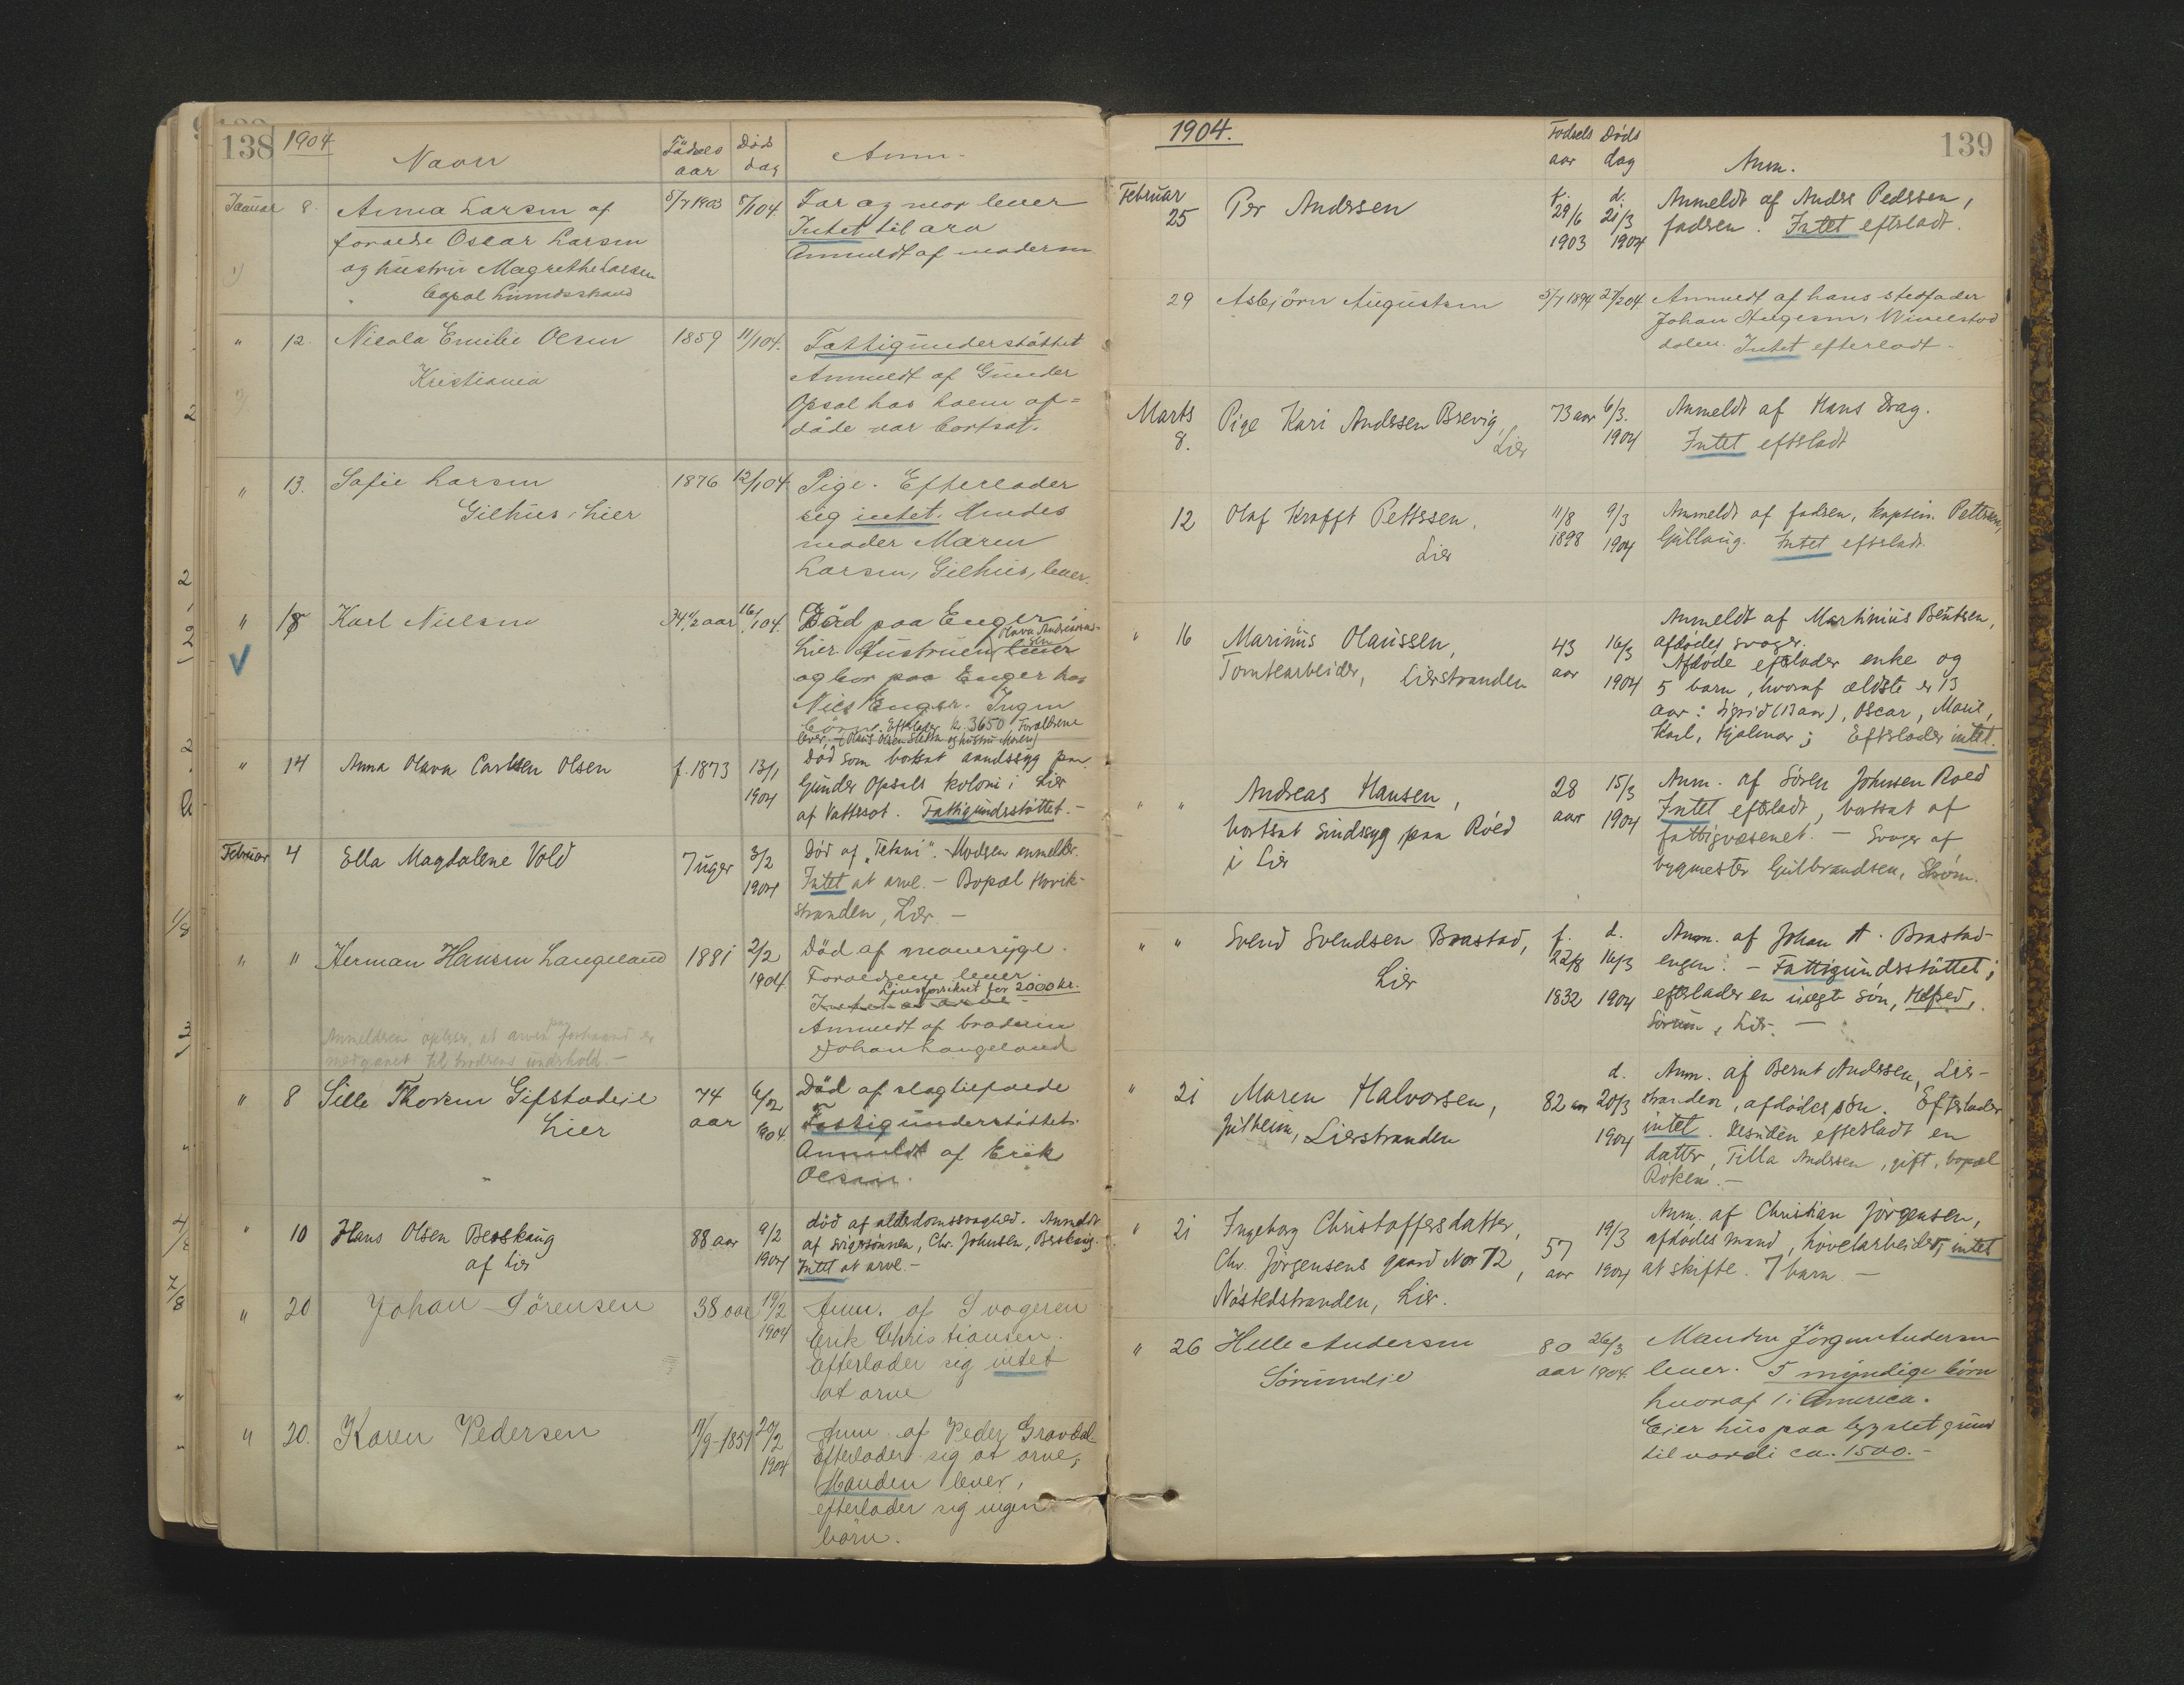 138
1904
Navn
Födsels
aar
Död
dag
Anm.
Januar 8. Anna Larsen af
foraeldre Oscar Larsen
og hustru Magrethe Larsen
bopæl Lunndsstrand
5/7 1903
8/1 04.
Far og mor lever
Intet til arv
Anmeldt af moderen
" 12. Nicola Emilie Olsen
Kristiania
1859
11/1 04.
Fattigunderstöttet
Anmeldt af Gunder
Opsal hos hvem af=
döde var bortsat.
" 13. Sofie Larsen
Gilhus, Lier
1876
12/1 04
Pige. Efterlader
sig intet. Hendes
moder Maren
Larsen, Gilhus, lever.
" 18 Karl Nielsen
34 1/2 aar
16/1 04.
Död paa Enger i
Lier. Hustruen lever
og bor paa Enger hos
Niels Enger. Ingen
börn. Efterlader kr. 3650. Forældrene
lever,
" 14 Anna Olava Carlsen Olsen
f. 1873
13/1
1904
Död som bortsat aandssyg paa
Gunder Opsals koloni i Lier
af Vattersot. Fattigunderstöttet. -
Februar 4 Ella Magdalene Vold
7 uger
3/2
1904
Död af "Tetani". - Moderen anmelder.
Intet at arve. - Bopæl Hovik-
stranden, Lier. -
" " Herman Hansen Langeland
1881
2/2
1904
Död af mavesyge.
Foraeldrene lever.
Livsforsikret for 2000 kr.
Intet at arve -
Anmeldt af broderen
Johan Langeland
Anmelderen oplyser, at arven paa forhaand er
medgaaet til broderens underhold. -
" 8 Sille Thorsen Gifstadeie
Lier
74
aar
6/2
1904.
Död af slagtilfaelde
Fattigunderstöttet.
Anmeldt af Erik
Olsen.
" 10 Hans Olsen Berskaug
af Lier
88 aar
9/2
1904
död af alderdomssvaghed. Anmeldt
af svigersönnen, Chr. Johnsen, Berskaug.
Intet at arve. -
" 20 Johan Sörensen
38 aar
19/2
1904
Anm. af Svogeren
Erik Christiansen.
Efterlader sig intet
at arve
" 20. Karen Pedersen
11/9 - 1851
20/2
1904
Anm. af Peder Gravdal
Efterlader sig at arve,
Manden lever,
efterlader sig ingen
börn.
139
1904.
Födsels
aar
Döds
dag
Anm.
Februar
25 Per Andersen
f.
29/6
1903
d.
21/3
1904
Anmeldt af Anders Pedersen,
faderen. Intet efterladt.
29 Asbjörn Augustsen
5/7 1894
27/2 04
Anmeldt af hans stedfader
Johan
dalen. Intet efterladt -
Marts
8. Pige Kari Andersen Brevig,
Lier
73 aar
6/3.
1904
Anmeldt af Hans Drag.
Intet efterladt
12 Olaf Krafft Pettersen,
Lier
11/8
1898
9/3
1904
Anmeldt af faderen, kaptein Pettersen,
Gullaug. Intet efterladt.
" 16 Marinius Olaussen,
Tomtearbeider, Lierstranden
43
aar
16/3
1904
Anmeldt af Martinius Bentsen,
afdödes svoger.
Afdöde efterlader enke og
5 barn, hvoraf ældste er 13
aar: Sigrid (13 aar), Oscar, Marie,
Karl, Hjalmar; Efterlader intet.
" " Andreas Hansen,
bortsat sindssyg paa Röed
i Lier
28
aar
15/3
1904
Anm. af Sören Johnsen Roed
Intet efterladt, bortsat af
fattigvæsenet. - Svoger af
bygmester Gulbrandsen, Ström.
" " Svend Svendsen Brastad,
Lier
f.
22/8
1832
d.
16/3
1904
Anm. af Johan A. Brastad-
engen. - Fattigunderstöttet;
efterlader en uægte sön, Alfred,
Sörum, Lier. -
" 21 Maren Halvorsen,
Julheim, Lierstranden
82 aar
d.
20/3
1904
Anm. af Bernt Andersen, Lier-
stranden, afdödes sön. Efterlader
intet. Desuden efterladt en
datter, Tilla Andersen, gift, bopæl
Röken. -
" 21 Ingeborg Christoffersdatter,
Chr. Jörgensens gaard No 72,
Nöstedstranden, Lier.
57
aar
19/3
1904
Anm. af Christian Jörgensen,
afdödes mand, hövelarbeider; intet
at skifte. 7 barn -
" 26 Helle Andersen
Sörumeie
80
aar
26/3
1904.
Manden Jörgen Andersen
lever. 5 myndige börn
hvoraf 1 i America.
Eier hus paa bygslet grund
til værdi ca. 1500. -